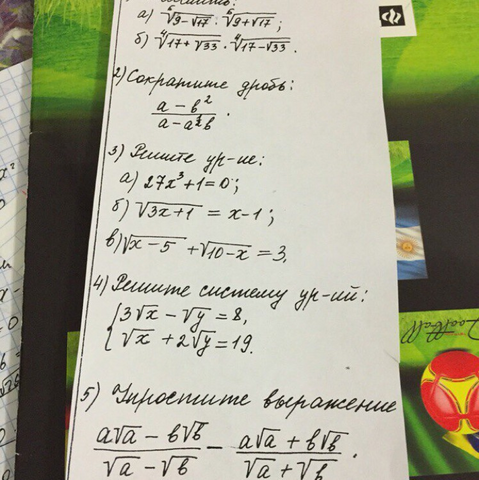 а) ⁶√9-√17 · ⁶√9+√17;
б) ⁴√17+√33 · ⁴√17-√33.
2) Сократите дробь:
a - b²
a - a^½ b.
3) Решите ур-ие:
а) 27x³+1=0;
б) √3x+1 = x-1;
в) √x-5 + √10-x = 3.
4) Решите систему ур-ий:
{3√x - √y = 8,
√x + 2√y = 19.
5) Упростите выражение
a√a - b√b / √a - √b - a√a + b√b / √a + √b.
Football